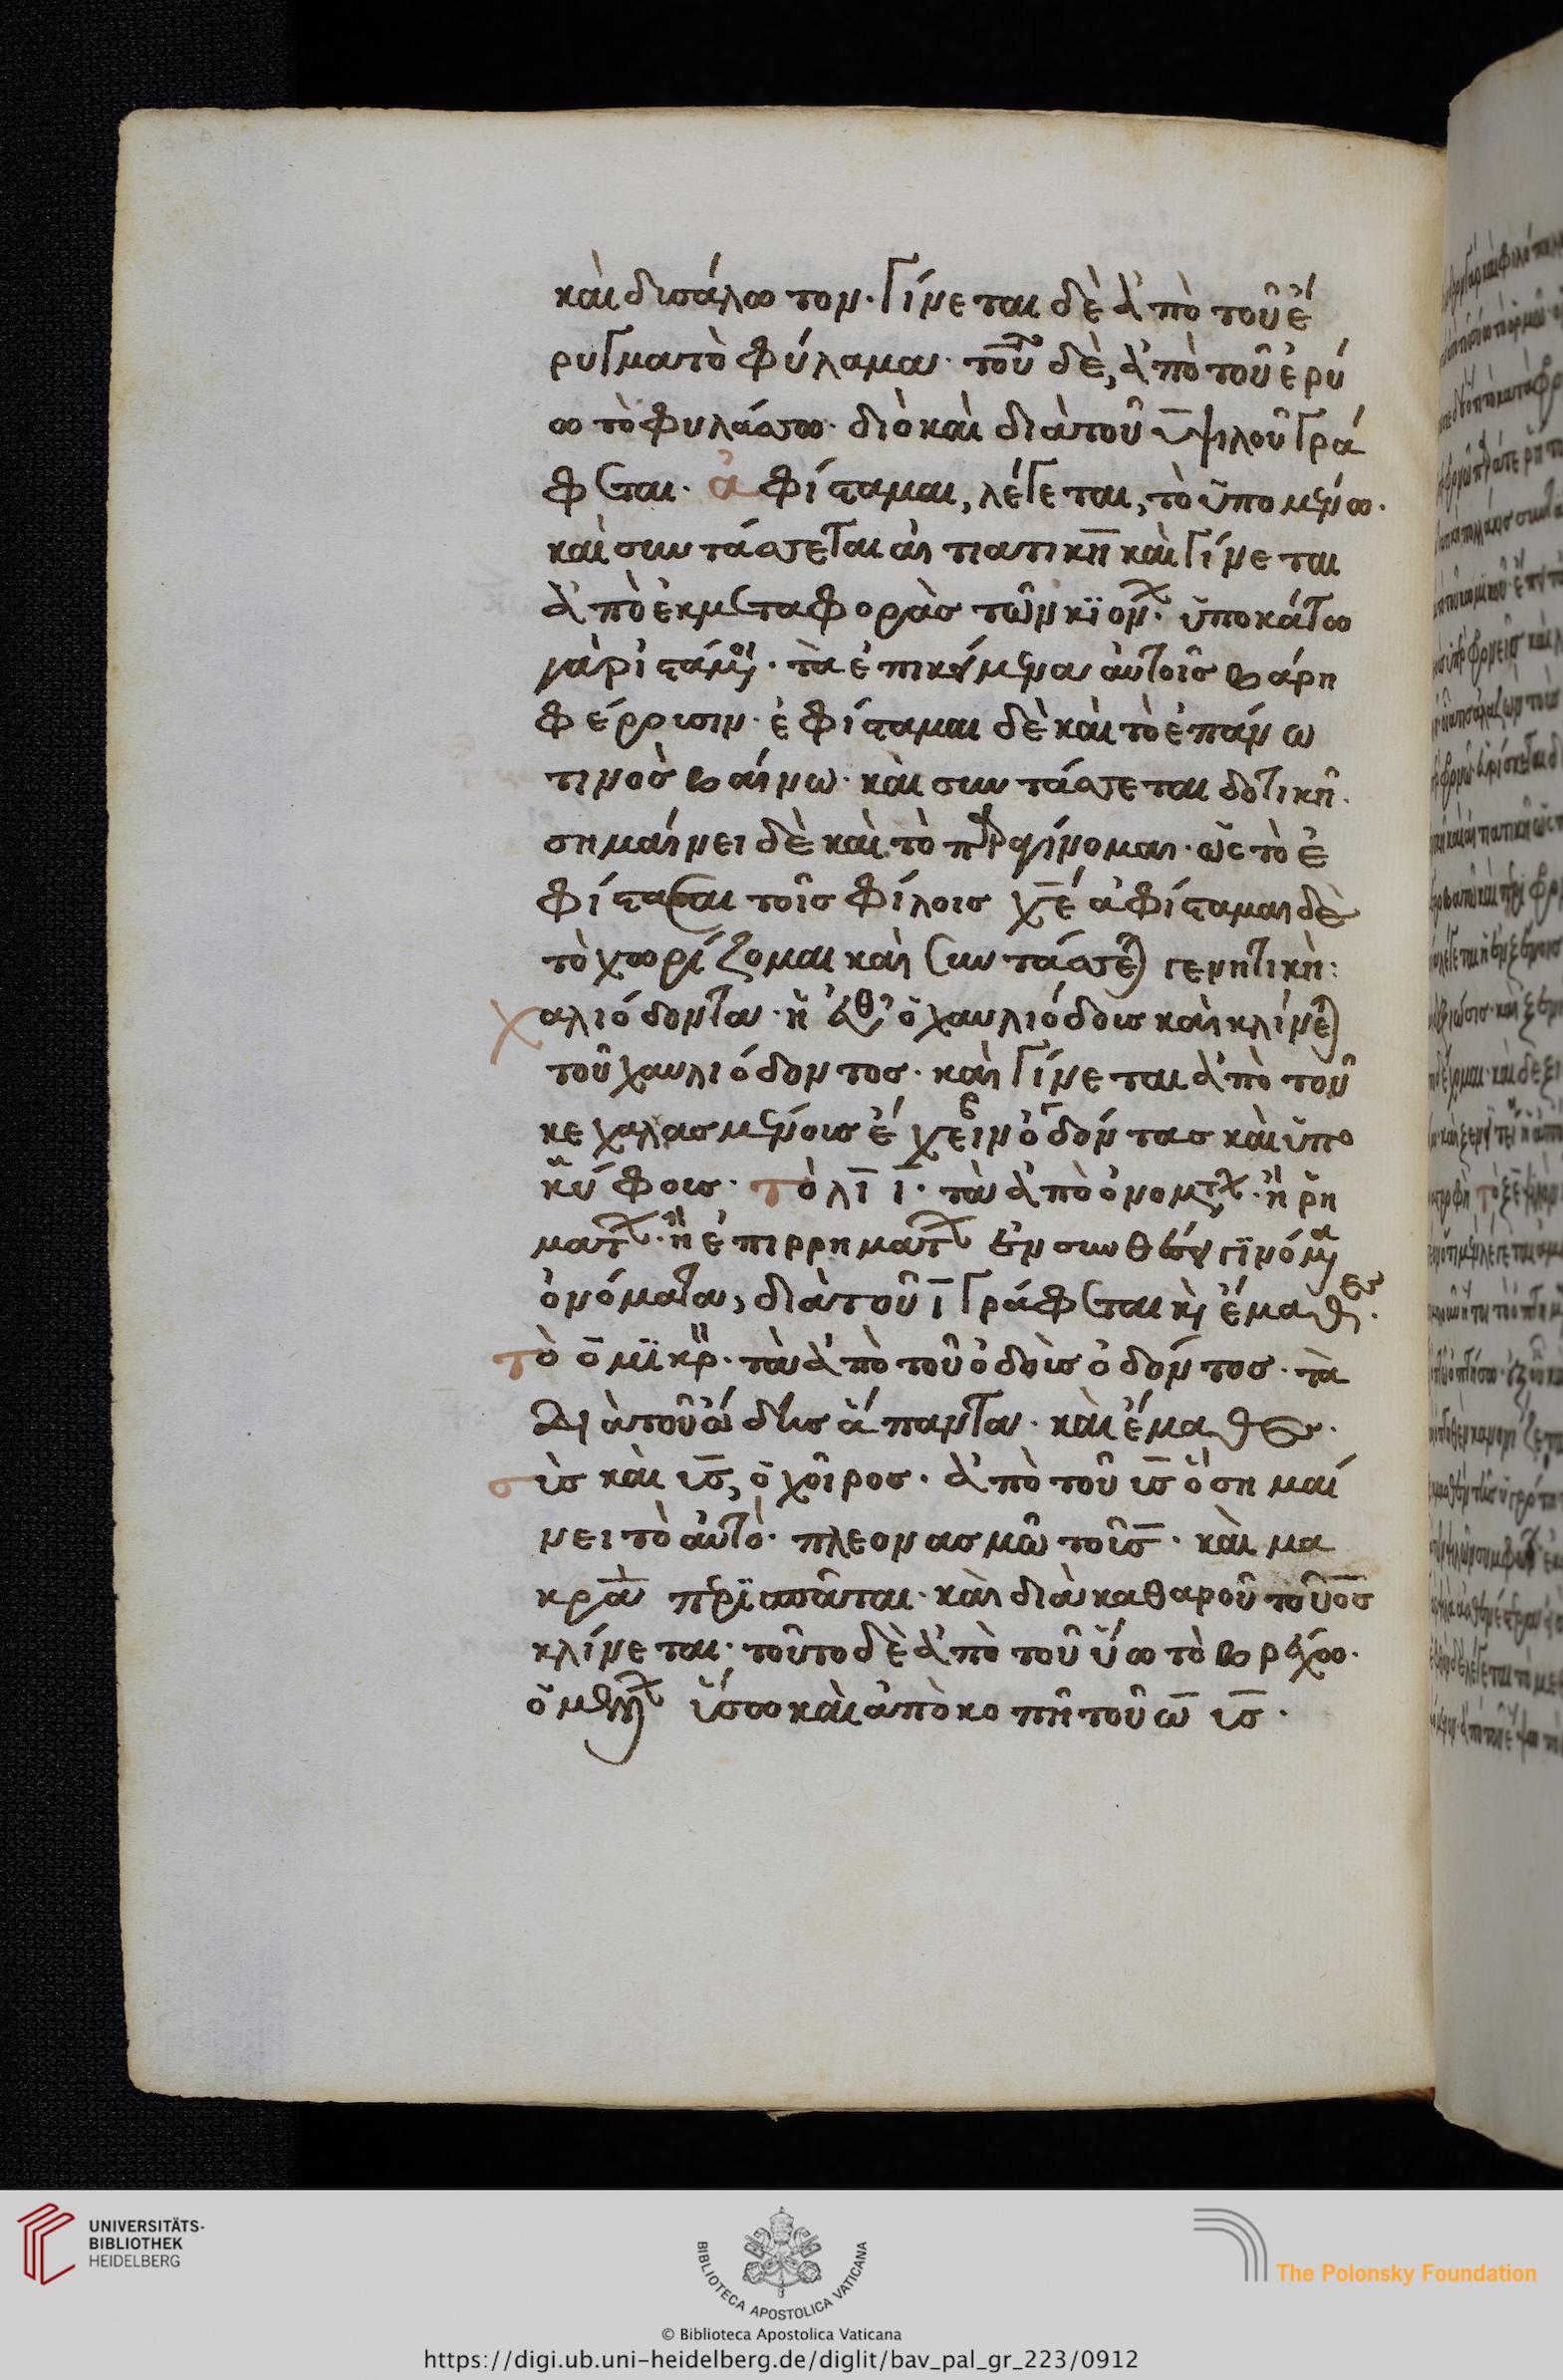 καὶ δυσάλωτον. Γίνεται δὲ ἀπὸ τοῦ ἔ
ρυγμα τὸ φύλαμα. τοῦτο δὲ, ἀπὸ τοῦ ἐρύ
ω τὸ φυλάσσω. διὸ καὶ διὰ τοῦ υ ψιλοῦ γρά
φεται. ἀφίσταμαι, λέγεται, τὸ ὑπομένω.
καὶ συντάσσεται αἰτιατικῆ καὶ γίνεται
ἀπὸ ἐκ μεταφορὰς τῶν κϊόν. ὑποκάτω
γὰρ ἱστάμενοι. τὰ ἐπικείμενα αὐτοῖς βάρη
φέρουσιν. ἐφίσταμαι δὲ καὶ τὸ ἐπάνω
τινοσ βαίνω. καὶ συντάσσεται δοτικῆ.
σημαίνει δὲ καὶ τὸ παραγίνομαι. ὡς τὸ ἐ
φίσταται τοῖς φίλοις χέ ἀφίσταμαι δὲ
τὸ χωρίζομαι καὶ συντάσσεται γενητικὴ:
χαλιόδοντα. ἡ εὐθεῖ ὁ χαυλιόδους καὶ κλίνεται
τοῦ χαυλιόδοντος. καὶ γίνεται ἀπὸ τοῦ
κεχαλασμένους ἔχειν ὀδόντας καὶ ὑπο
κύφους. τὸ λι ι. τὰ ἀπὸ ὀνομάτ. ἢ ῥη
μάτ. ἢ ἐπιρρημάτ ἐν συνθέσει γϊνόμενα
ὀνόματα, διὰ τοῦ ι γράφεται κὴ ἔμαθες.
τὸ ο μϊκρ. τὰ ἀπὸ τοῦ ὀδοὺς ὀδόντος. τὰ
διὰ τοῦ ώδης ἅπαντα. καὶ ἔμαθες.
σὺς καὶ υς, ὁ χοῖρος. ἀπὸ τοῦ υς ὃ σημαί
νει τὸ αὐτό. πλεονασμῶ τοῦ σ. καὶ μα
κρὰ περϊσπᾶται. καὶ διὰ καθαροῦ τοῦ ος
κλίνεται. τοῦτο δὲ ἀπὸ τοῦ ὕω τὸ βρέχω.
ὁ μέλλ ὕσω καὶ ἀποκοπῆ τοῦ ω υς.
UNIVERSITÄTS-
BIBLIOTHEK
HEIDELBERG
BIBLIOTECA APOSTOLICA VATICANA
The Polonsky Foundation
© Biblioteca Apostolica Vaticana
https://digi.ub.uni-heidelberg.de/diglit/bav_pal_gr_223/0912